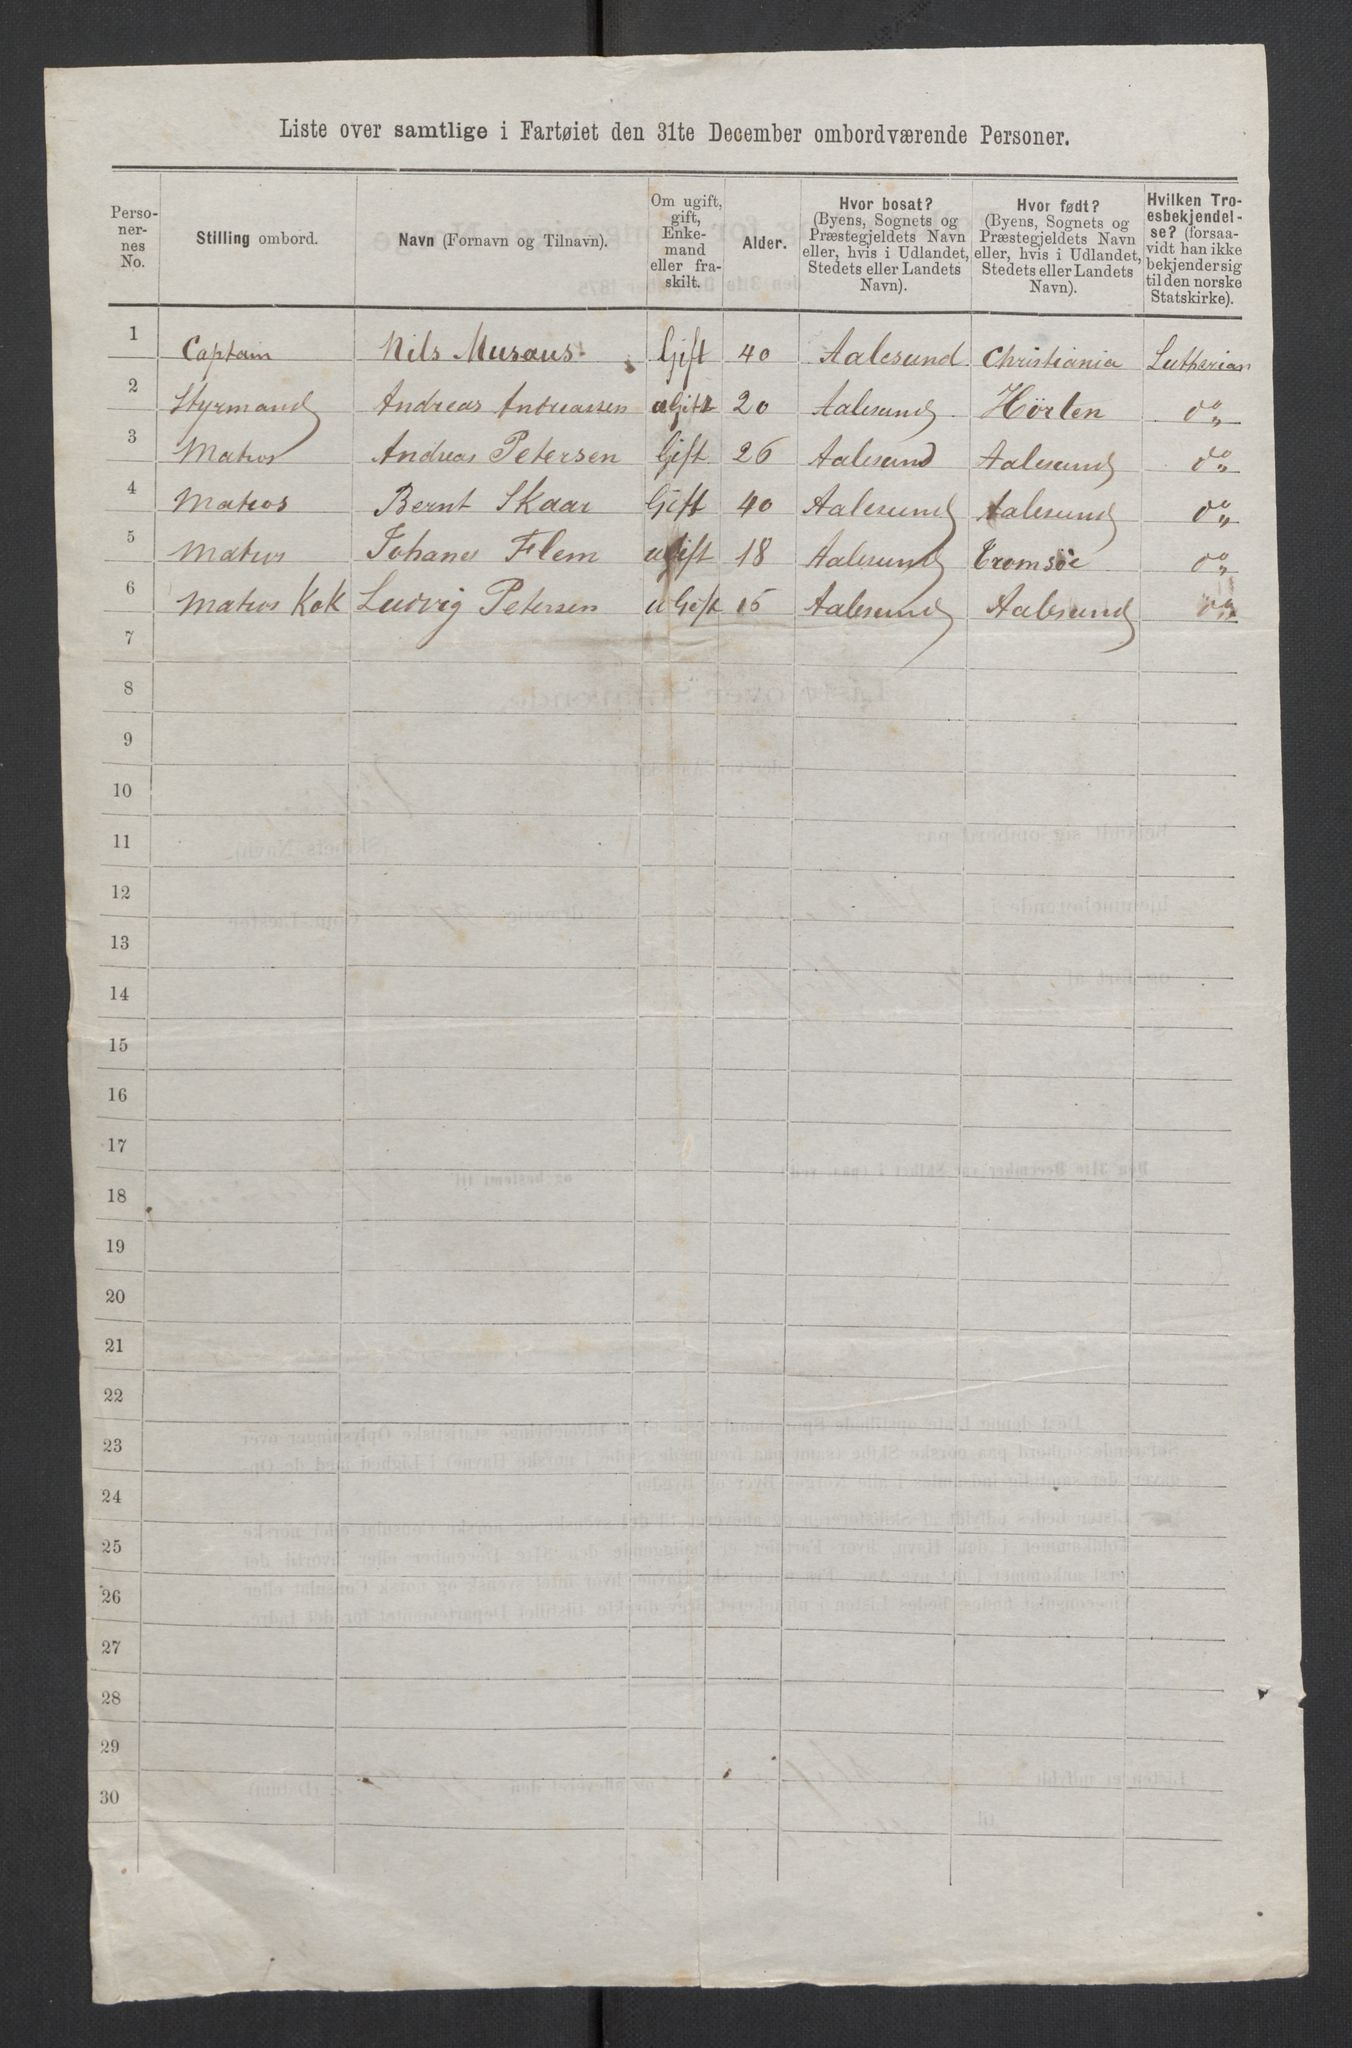 Liste over samtlige i Fartøiet den 31te December ombordværende Personer.
Perso-
ner-
nes
No.
Stilling ombord.
Navn (Fornavn og Tilnavn).
Om ugift,
gift,
Enke-
mand
eller fra-
skilt.
Alder.
Hvor bosat?
(Byens, Sognets og
Præstegjeldets Navn
eller, hvis i Udlandet,
Stedets eller Landets
Navn).
Hvor født?
(Byens, Sognets og
Præstegjeldets Navn
eller, hvis i Udlandet,
Stedets eller Landets
Navn).
Hvilken Tro-
esbekjendel-
se? (forsaa-
vidt han ikke
bekjender sig
til den norske
Statskirke).
1 Captain Nils Musæus Gift 40 Aalesund Christiania Lutherian
2 Styrmand Andreas Andreassen uGift 20 Aalesund Hörten do „
3 Matros Andreas Petersen Gift 26 Aalesund Aalesund do „
4 Matros Bernt Skaar Gift 40 Aalesund Aalesund do „
5 Matros Johanes Flem ugift 18 Aalesund Tromsöe do „
6 Matros Kok Ludvig Petersen uGift 15 Aalesund Aalesund do „
7
8
9
10
11
12
13
14
15
16
17
18
19
20
21
22
23
24
25
26
27
28
29
30